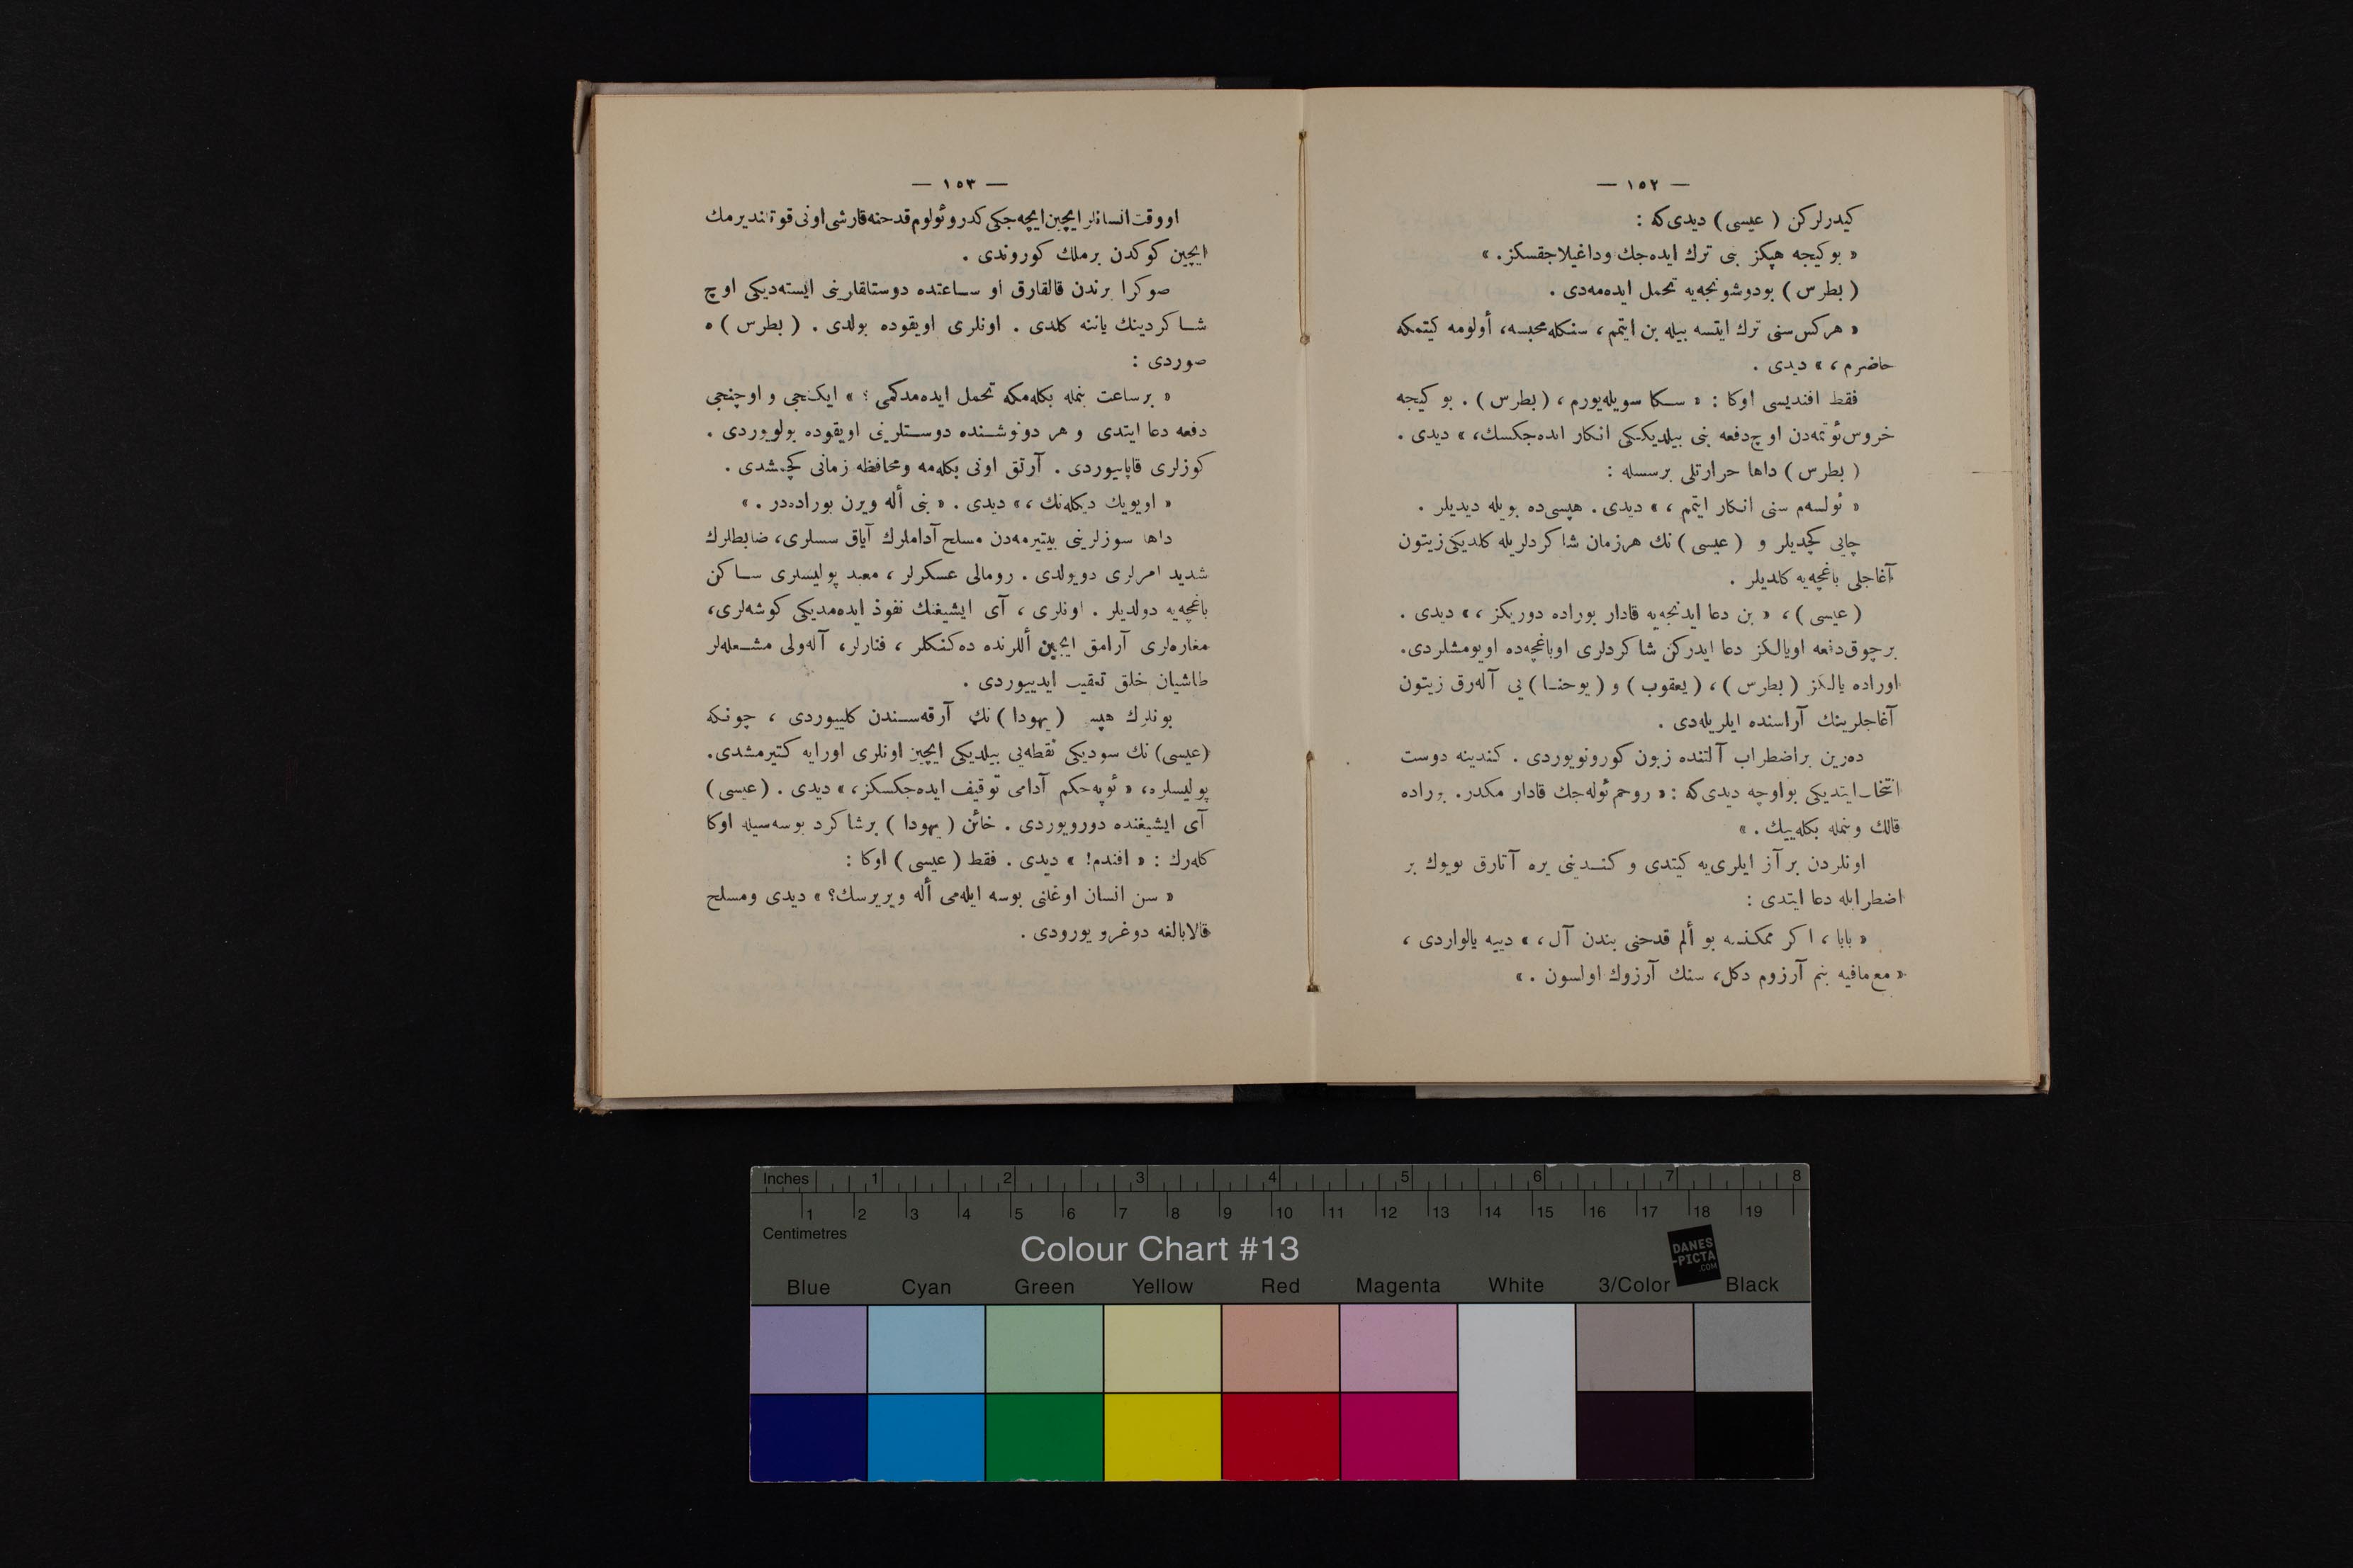 — ١٥٢ —
كيدرلركن ( عيسى ) ديدى‌كه :
« بوكيجه هپكز بنى ترك ايده‌جك وداغيلاجقسكز . »
( بطرس ) بودوشونجه‌يه تحمل ايده‌مه‌دى .
« هركس سنى ترك ايتسه بيله بن ايتمم ، سنكله محبسه ، أولومه كيتمكه
حاضرم ، » ديدى .
فقط افنديسى اوكا : « سكا سويله‌يورم ، ( بطرس ) . بو كيجه
خروس ئوتمه‌دن اوچ دفعه بنى بيلديككى انكار ايده‌جكسك ، » ديدى .
( بطرس ) داها حرارتلى برسسله :
« ئولسه‌م سنى انكار ايتمم ، » ديدى . هپسى‌ده بويله ديديلر .
چايى كچديلر و ( عيسى ) نك هرزمان شاكردلريله كلديكى زيتون
آغاجلى باغچه‌يه كلديلر .
( عيسى ) ، « بن دعا ايدنجه‌يه قادار بوراده دوريكز ، » ديدى .
برچوق دفعه اويالكز دعا ايدركن شاكردلرى اوباغچه‌ده اويومشلردى .
اوراده يالكز ( بطرس ) ، ( يعقوب ) و ( يوحنا ) يى آله‌رق زيتون
آغاجلرينك آراسنده ايلريله‌دى .
ده‌رين براضطراب آلتنده زبون كورونويوردى . كندينه دوست
انتخاب ايتديكى بواوچه ديدى‌كه : « روحم ئوله‌جك قادار مكدر . بوراده
قالك وبنمله بكله‌ييك . »
اونلردن بر آز ايلرى‌يه كيتدى و كندينى يره آتارق بويوك بر
اضطرابله دعا ايتدى :
« بابا ، اكر ممكنسه بو ألم قدحنى بندن آل ، » دييه يالواردى ،
« مع‌مافيه بنم آرزوم دكل ، سنك آرزوك اولسون . »
— ١٥٣ —
اووقت انسانلر ايچين ايچه‌جكى كدر وئولوم قدحنه قارشى اونى قوتلنديرمك
ايچين كوكدن برملك كوروندى .
صوكرا يرندن قالقارق او ساعتده دوستلقلرينى ايسته‌ديكى اوچ
شاكردينك ياننه كلدى . اونلرى اويقوده بولدى . ( بطرس ) ه
صوردى :
« برساعت بنمله بكله‌مكه تحمل ايده‌مدكمى ؟ » ايكنجى و اوچنجى
دفعه دعا ايتدى و هر دونوشنده دوستلرينى اويقوده بولويوردى .
كوزلرى قاپاييوردى . آرتق اونى بكله‌مه ومحافظه زمانى كچمشدى .
« اويويك ديكله‌نك ، » ديدى . « بنى أله ويرن بوراده‌در . »
داها سوزلرينى بيتيرمه‌دن مسلح آداملرك آياق سسلرى ، ضابطلرك
شديد امرلرى دويولدى . رومالى عسكرلر ، معبد پوليسلرى ساكن
باغچه‌يه دولديلر . اونلرى ، آى ايشيغنك نفوذ ايده‌مديكى كوشه‌لرى ،
مغاره‌لرى آرامق ايچين أللرنده ده‌كنكلر ، فنارلر ، آله‌ولى مشعله‌لر
طاشيان خلق تعقيب ايدييوردى .
بونلرك هپسى ( يهودا ) نك آرقه‌سندن كلييوردى ، چونكه
( عيسى ) نك سوديكى نقطه‌يى بيلديكى ايچين اونلرى اورايه كتيرمشدى .
پوليسلره ، « ئوپه‌جكم آدامى توقيف ايده‌جكسكز ، » ديدى . ( عيسى )
آى ايشيغنده دورويوردى . خائن ( يهودا ) برشاكرد بوسه‌سيله اوكا
كله‌رك : « افندم ! » ديدى . فقط ( عيسى ) اوكا :
« سن انسان اوغلنى بوسه ايله‌مى أله ويريرسك ؟ » ديدى ومسلح
قالابالغه دوغرو يورودى .
Inches 1 2 3 4 5 6 7 8
1 2 3 4 5 6 7 8 9 10 11 12 13 14 15 16 17 18 19
Centimetres
Colour Chart #13
DANES
-PICTA
.COM
Blue Cyan Green Yellow Red Magenta White 3/Color Black